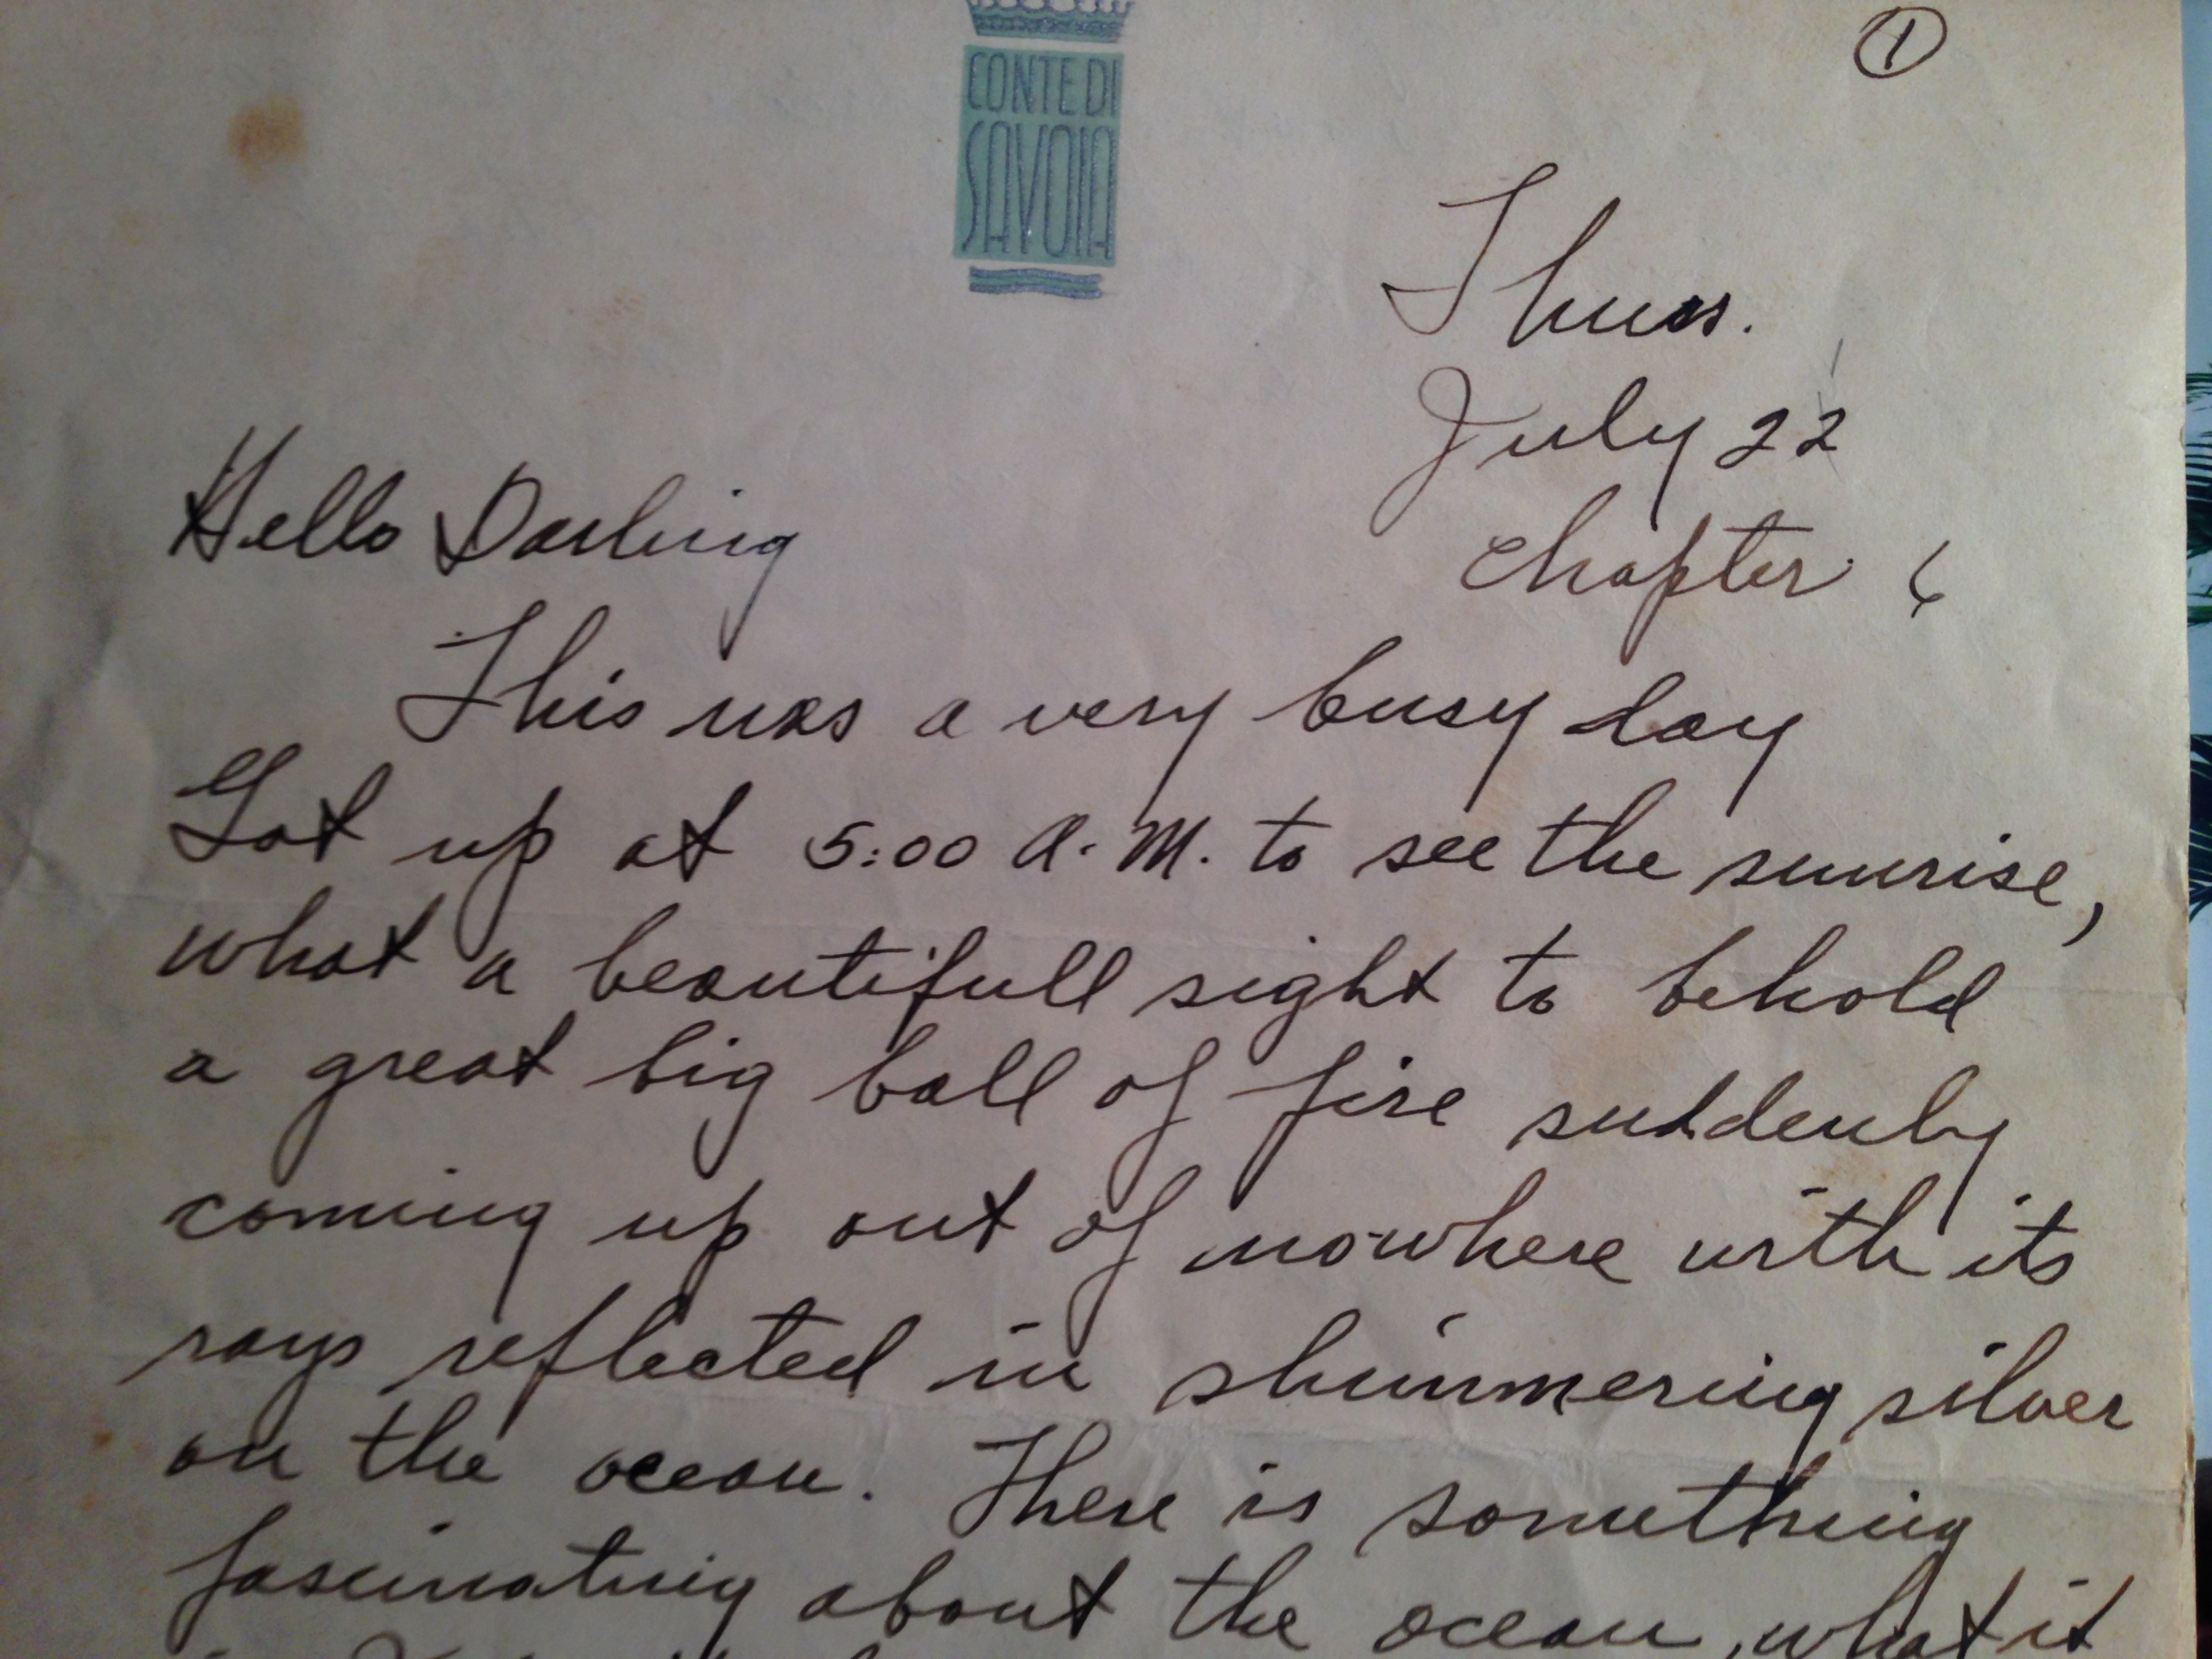 ①
CONTE DI
SAVOIA
Thurs.
July 22
Chapter 6
Hello Darling
This was a very busy day
Got up at 5:00 A.M. to see the sunrise,
what a beautifull sight to behold
a great big ball of fire suddenly
coming up out of nowhere with its
rays reflected in shimmering silver
on the ocean. There is something
fascinating about the ocean, what it